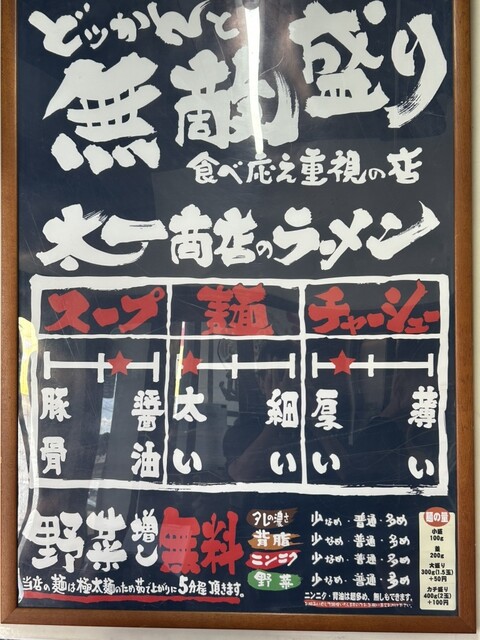 どッかんと
無敵盛り
食べ応え重視の店
太一商店のラーメン
スープ 麺 チャーシュー
豚骨 醤油 太い 細い 厚い 薄い
野菜増し無料
当店の麺は極太麺のため茹で上がりに5分程頂きます。
タレの濃さ 少なめ・普通・多め
背脂 少なめ・普通・多め
ニンニク 少なめ・普通・多め
野菜 少なめ・普通・多め
ニンニク・背油は超多め、無しもできます。
麺の量
小盛
100g
並
200g
大盛り
300g(1.5玉)
+50円
カチ盛り
400g(2玉)
+100円